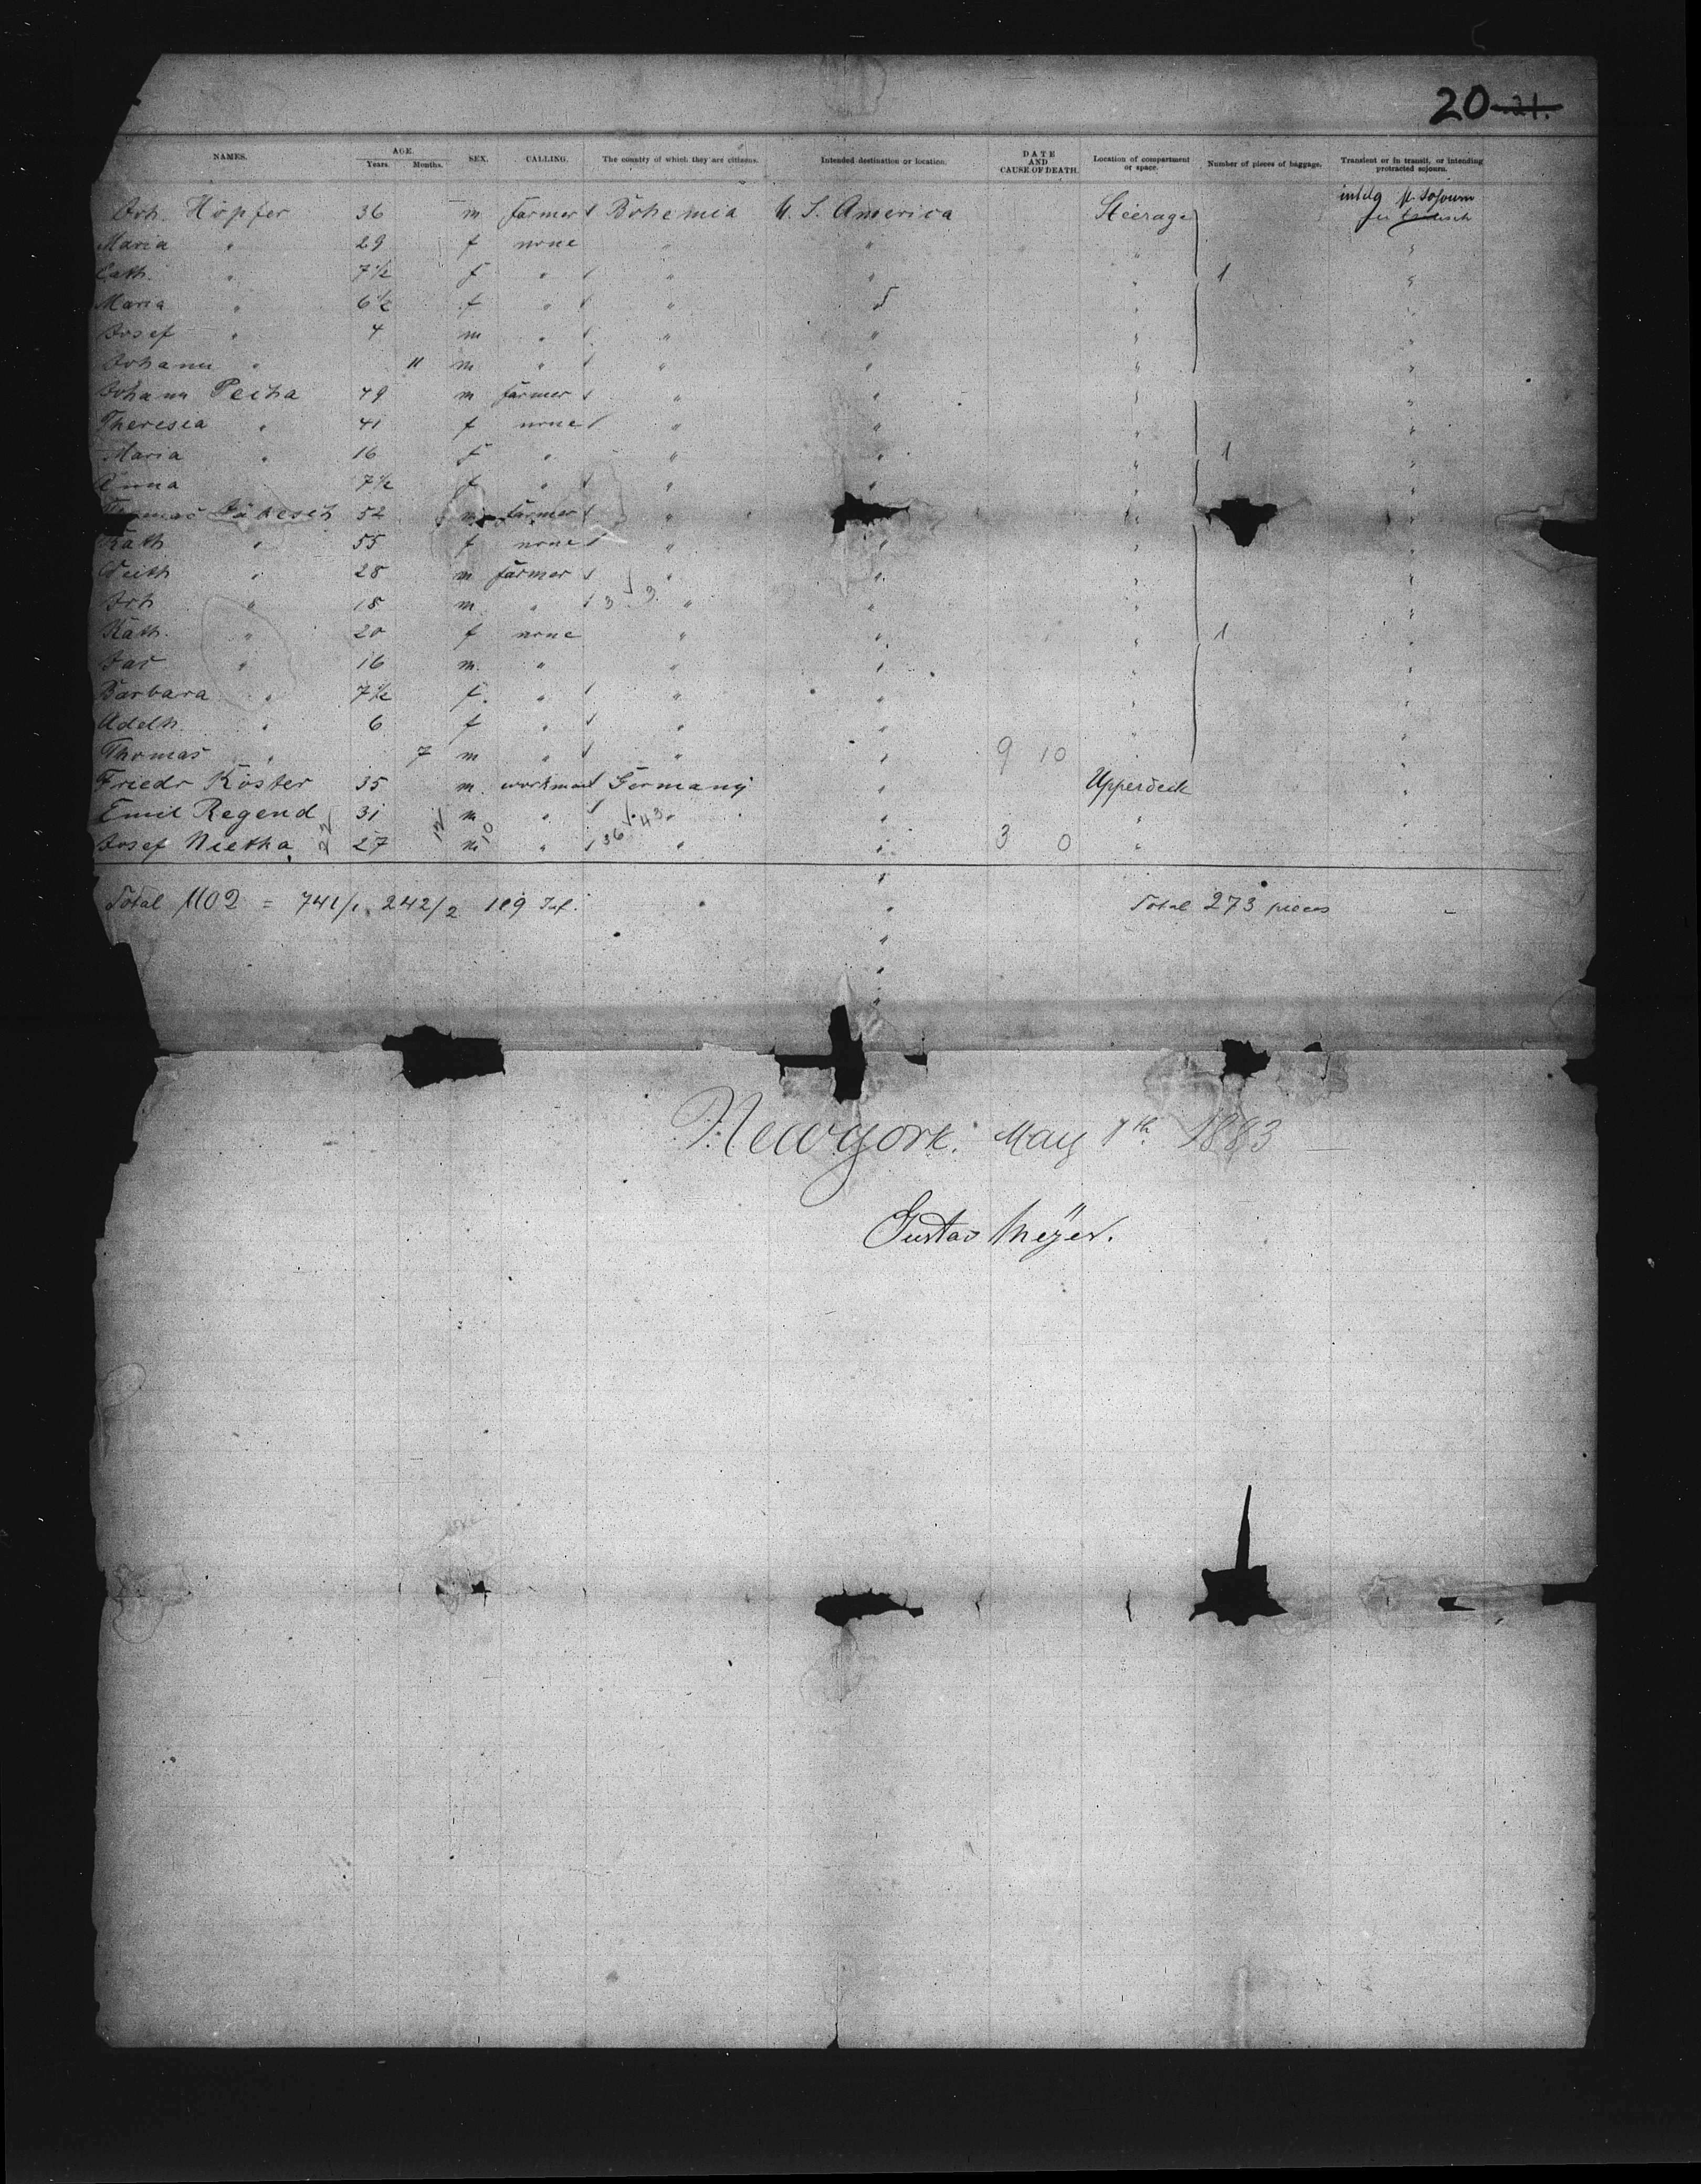 20 21.
NAMES. AGE. Years. Months. SEX. CALLING. The country of which they are citizens. Intended destination or location. DATE AND CAUSE OF DEATH. Location of compartment or space. Number of pieces of baggage. Transient or in transit, or intending protracted sojourn.
Joh. Höpfer 36 m farmer Bohemia U. S. America Steerage intdg p. Sojourn
Maria " 29 f none " " " "
Cath. " 7½ f " " " " 1 "
Maria " 6½ f " " " "
Josef " 4 m " " " " "
Johann " 11 m " " " " "
Johann Pecha 49 m farmer " " " "
Theresia " 41 f none " " " "
Maria " 16 f " " " " 1 "
Anna 7½ f " " " " "
52 m farmer " " "
Kath " 55 f none " " " "
Veith " 28 m farmer " " " "
Joh " 18 m " 3 3 " " " "
Kath. " 20 f none " " " 1 "
16 m " " " " "
Barbara " 7½ f. " " " " "
Adelh. " 6 f " " " " "
Thomas " 7 m " " " 9 10 " "
Friedr Köster 35 m workman Germany " Upperdeck "
Emil Regend 31 m " 43 " " " "
Josef Nietha 27 m 10 " 36 " " 3 0 "
Total 1102 = 741/1. 242/2 119 Inf. Total 273 pieces
Newyork. May 7th 1883
Gustav Meÿer.